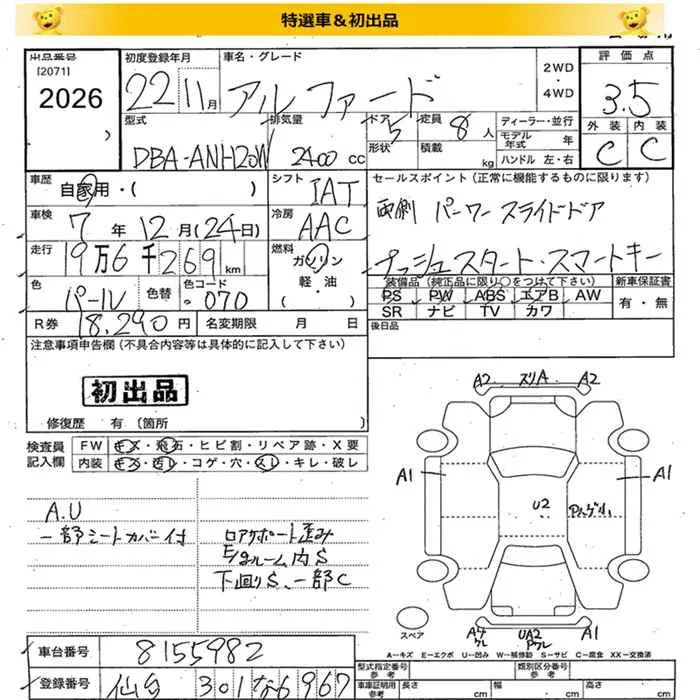 特選車＆初出品
出品番号 初度登録年月 車名・グレード 評価点
[2071] 2WD
2026 22 11月 アルファード ・4WD 3.5
型式 排気量 ドア 5 定員 8人 ディーラー・並行 外装 内装
モデル年式 年
DBA-ANH20W 2400 cc 形状 積載 kg ハンドル 左・右 C C
車歴 自家用・( ) シフト IAT セールスポイント（正常に機能するものに限ります）
車検 7年12月(24日) 冷房 AAC 両側 パーワースライドドア
走行 19万6千269km 燃料 ガソリン プッシュスタート・スマートキー
軽・油
( ・ )
装備品（純正品に限り○をつけて下さい） 新車保証書
色 パール 色替 色コード ・070 PS PW ABS エアB AW 有・無
SR ナビ TV カワ
R券 18,290円 名変期限 月 日 後日品
注意事項申告欄（不具合内容等は具体的に記入して下さい）
初出品
修復歴 有〔箇所 〕
検査員 FW キズ・飛石・ヒビ割・リペア跡・X要
記入欄 内装 キズ・汚レ・コゲ・穴・スレ・キレ・破レ
A.U
一部シートカバー付
ロアサポート歪み
E/gルーム内S
下回りS、一部C
A2 スリA A2
A1 A1
U2
スペア UA2 A1
A-キズ E-エクボ U-凹み W-補修跡 S-サビ C-腐食 XX-交換済
車台番号 8155982
登録番号 仙台 301 な 6967
型式指定番号 参考 類別区分番号 参考
車庫証明用 参考 長さ cm 幅 cm 高さ cm